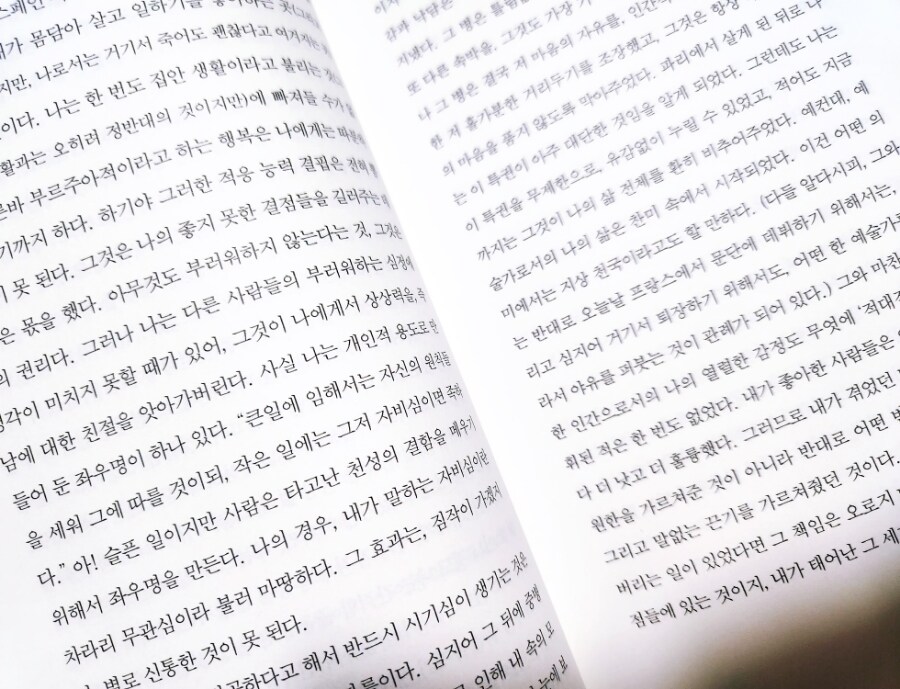 내가 몸담아 살고 일하기를 좋아하는 곳
지만, 나로서는 거기서 죽어도 괜찮다고 여겨지는
이다. 나는 한 번도 집안 생활이라고 불리는
활과는 오히려 정반대의 것이지만)에 빠져들 수가
른바 부르주아적이라고 하는 행복은 나에게는
기까지 하다. 하기야 그러한 적응 능력 결핍은 전혀
이 못 된다. 그것은 나의 좋지 못한 결점들을 길러주는 데
은 몫을 했다. 아무것도 부러워하지 않는다는 것, 그것은
의 권리다. 그러나 나는 다른 사람들의 부러워하는 심정에
생각이 미치지 못할 때가 있어, 그것이 나에게서 상상력을, 즉
남에 대한 친절을 앗아가버린다. 사실 나는 개인적 용도로 만
들어 둔 좌우명이 하나 있다. “큰일에 임해서는 자신의 원칙들
을 세워 그에 따를 것이되, 작은 일에는 그저 자비심이면 족하
다.” 아! 슬픈 일이지만 사람은 타고난 천성의 결함을 메우기
위해서 좌우명을 만든다. 나의 경우, 내가 말하는 자비심이란
차라리 무관심이라 불러 마땅하다. 그 효과는, 짐작이 가겠지
별로 신통한 것이 못 된다.
해서 반드시 서기심이 생기는 것은
심지어 그 뒤에
인해 내 속의 모
눈에 보
지녔다. 그 병은
또 다른 속박을. 그것도 가장
나 그 병은 결국 저 마음의 자유를, 인간적
한 저 홀가분한 거리두기를 조장했고, 그것은 항상
의 마음을 품지 않도록 막아주었다. 파리에서 살게 된 뒤로 나
는 이 특권이 아주 대단한 것임을 알게 되었다. 그런데도 나는
이 특권을 무제한으로, 유감없이 누릴 수 있었고, 적어도 지금
까지는 그것이 나의 삶 전체를 환히 비추어주었다. 예컨대, 예
술가로서의 나의 삶은 찬미 속에서 시작되었다. 이건 어떤 의
미에서는 지상 천국이라고도 할 만하다. (다들 알다시피, 그와
는 반대로 오늘날 프랑스에서 문단에 데뷔하기 위해서는,
리고 심지어 거기서 퇴장하기 위해서도, 어떤 한 예술가
라서 야유를 퍼붓는 것이 관례가 되어 있다.) 그와 마찬
한 인간으로서의 나의 열렬한 감정도 무엇에 ‘적대적
휘된 적은 한 번도 없었다. 내가 좋아한 사람들은
다 더 낫고 더 훌륭했다. 그러므로 내가 겪었던
원한을 가르쳐준 것이 아니라 반대로 어떤
그리고 말없는 끈기를 가르쳐줬던 것이다.
버리는 일이 있었다면 그 책임은 오로지
점들에 있는 것이지, 내가 태어난 그 세